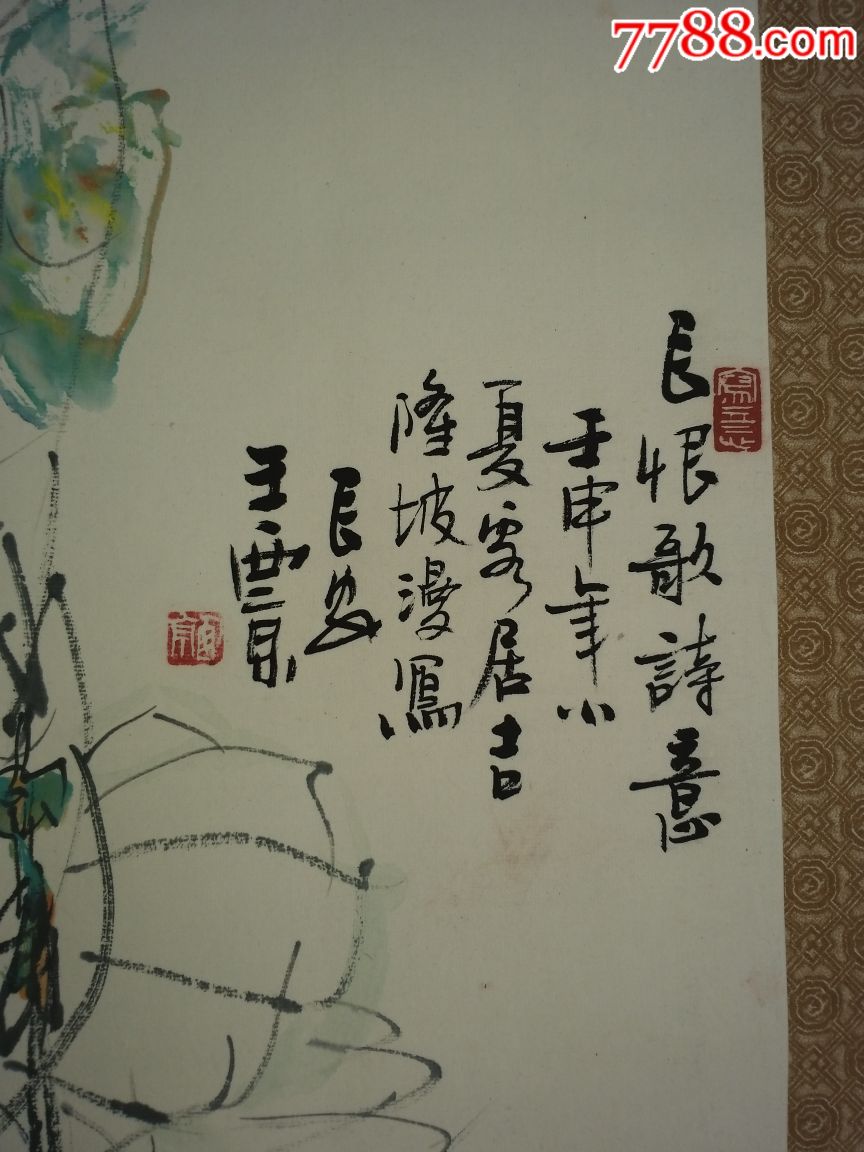 7788.com
長恨歌詩意
壬申年小
夏客居吉
隆坡漫寫
長安
王西京
寫意